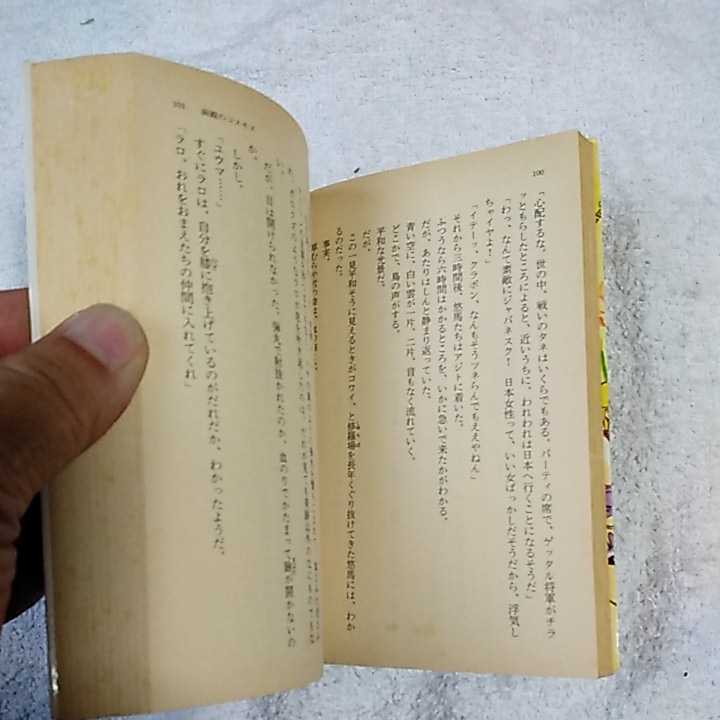 100
「心配するな。世の中、戦いのタネはいくらでもある。パーティの席で、ゲッタル将軍がチラ
ッともらしたところによると、近いうちに、われわれは日本へ行くことになるそうだ」
「わっ、なんて素敵にジャパネスク! 日本女性って、いい女ばっかしだそうだから、浮気し
ちゃイヤよ!」
「イテーッ、クラボン、なんもそうツネらんでもええやねん」
それから三時間後、悠馬たちはアジトに着いた。
ふつうなら六時間はかかるところを、いかに急いで来たかがわかる。
だが、あたりはしんと静まり返っていた。
青い空に、白い雲が一片、二片、音もなく流れていく。
どこかで、鳥の声がする。
平和な光景だ。
だが、
この一見平和そうに見えるときがコワイ、と修羅場を長年くぐり抜けてきた悠馬には、わか
るのだった。
事実、
だが、目は開けられなかった。
血のりでかたまって瞼が開かないの
か。
しかし、
「ユウマ……」
すぐにラロは、自分を膝に抱き上げているのがだれだか、わかったようだ。
「ラロ、おれをおまえたちの仲間に入れてくれ」
101